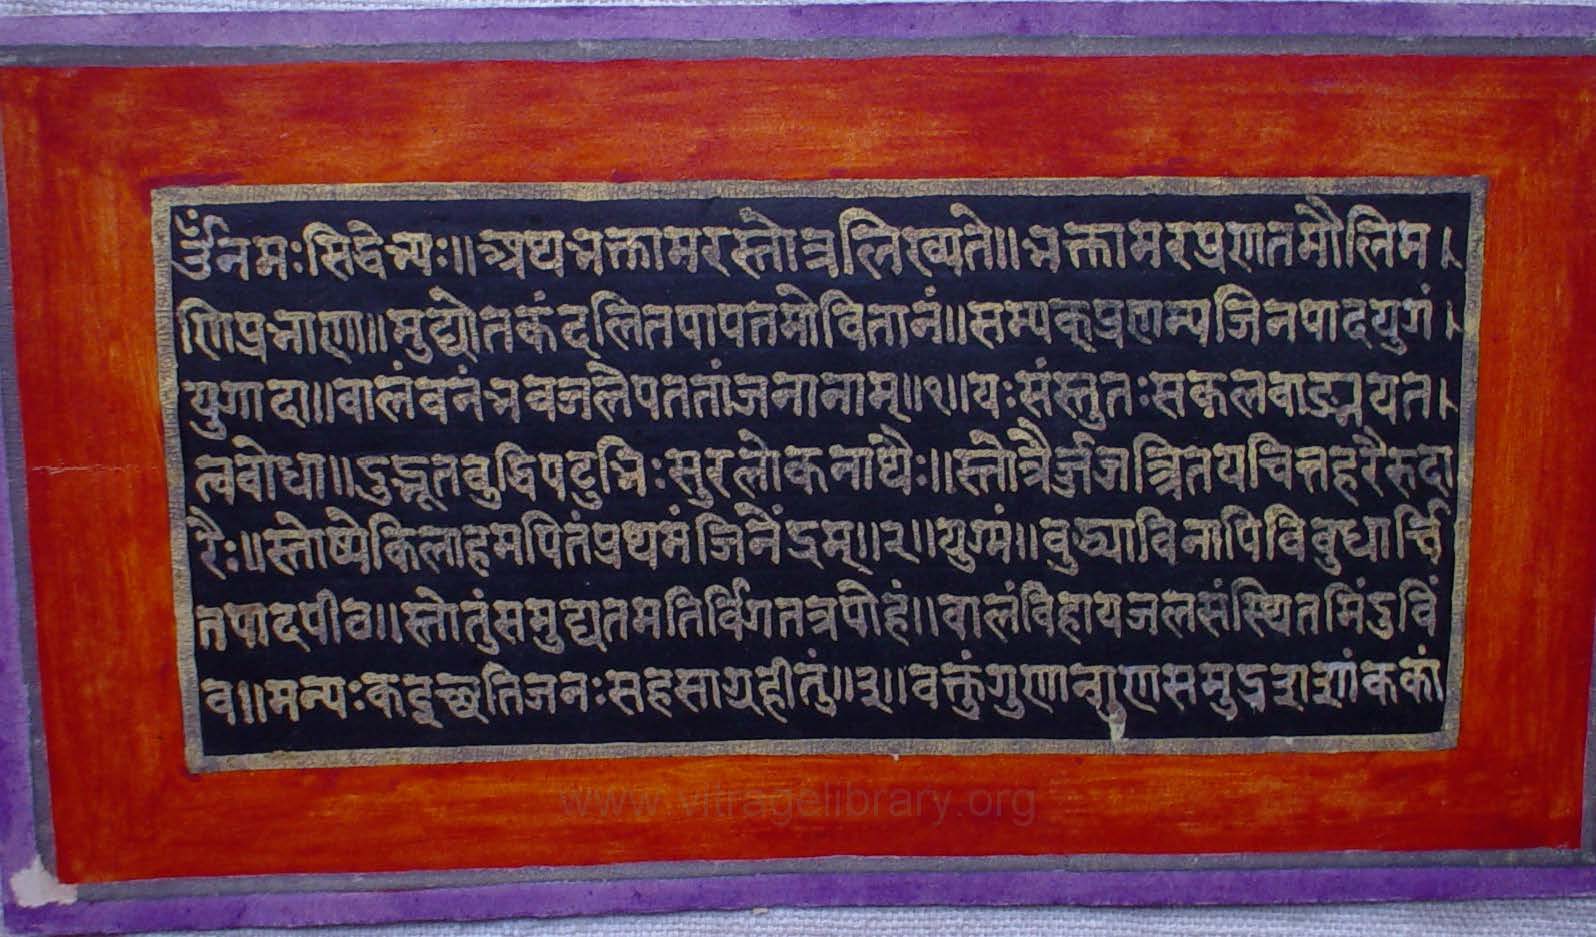 ॐनमःसिद्वेभ्यः॥अथभक्तामरस्तोत्रलिख्यते॥भक्तामरप्रणतमौलिम।
णिप्रभाणा॥मुद्योतकंदलितपापतमोवितानं॥सम्यक्प्रणम्यजिनपादयुगं।
युगादा॥वालंवनंभवजलैपततांजनानाम्॥१॥यःसंस्तुतःसकलवाङ्मयत।
त्ववोधा॥दुद्भूतवुद्धिपटुभिःसुरलोकनाथैः॥स्तोत्रैर्ज्जगत्रितयचित्तहरैरुदा
रैः॥स्तोष्येकिलाहमपितंप्रथमंजिनेंद्रम्॥२॥युग्मं॥वुध्याविनापिविवुधार्च्चि
तपादपीठ॥स्तोतुंसमुद्यतमतिर्विगतत्रपोहं॥वालंविहायजलसंस्थितमिंदुविं
व॥मन्यःकइच्छतिजनःसहसाग्रहीतुं॥३॥वक्तुंगुणान्गुणसमुद्रशशांककां
www.vitragelibrary.org